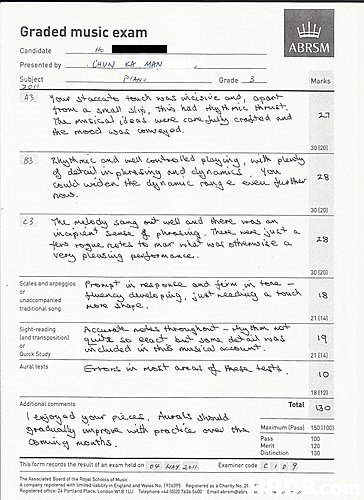 Graded music exam
ABRSM
Candidate Ho
Presented by CHUN KA MAN
Subject PIANO Grade 3 Marks
2011
A3 Your staccato touch was incisive and, apart
from a small slip, this had rhythmic thrust.
The musical ideas were carefully crafted and
the mood was conveyed.
27
30 (20)
B3 Rhythmic and well controlled playing, with plenty
of detail in phrasing and dynamics. You
could widen the dynamic range even further
now.
28
30 (20)
C3 The melody sang out well and there was an
incipient sense of phrasing. There were just a
few rogue notes to mar what was otherwise a
very pleasing performance.
28
30 (20)
Scales and arpeggios
or
unaccompanied
traditional song
Prompt in response and firm in tone –
fluency developing, just needing a touch
more shape.
18
21 (14)
Sight-reading
(and transposition)
or
Quick Study
Accurate notes throughout – rhythm not
quite so exact but some detail was
included in this musical account.
19
21 (14)
Aural tests
Errors in most areas of these tests.
10
18 (12)
Additional comments
I enjoyed your pieces. Aurals should
gradually improve with practice over the
coming months.
Total 130
Maximum (Pass) 150 (100)
Pass 100
Merit 120
Distinction 130
This form records the result of an exam held on 04 MAY 2011. Examiner code C109
The Associated Board of the Royal Schools of Music
A company registered in England and Wales No. 1926395 Registered as a Charity No.
Registered office: 24 Portland Place, London W1B 1LU Telephone +44 (0)20 7636 5400 Email abrsm@abrsm